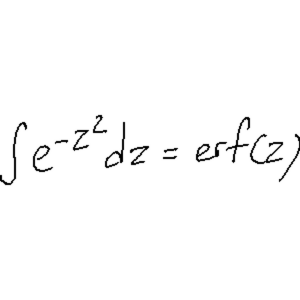 ∫e^{-z^2}dz = erf(z)